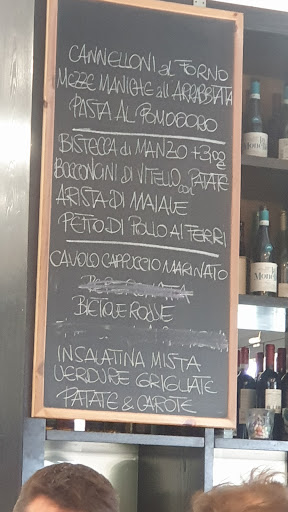 CANNELLONI al FORNO
MEZZE MANICHE all' ARRABBIATA
PASTA AL POMODORO
BISTECCA di MANZO +3,00 €
BOCCONCINI DI VITELLO con PATATE
ARISTA DI MAIALE
PETTO DI POLLO AI FERRI
CAVOLO CAPPUCCIO MARINATO
BIETOLE ROSSE
INSALATINA MISTA
VERDURE GRIGLIATE
PATATE & CAROTE
Monella